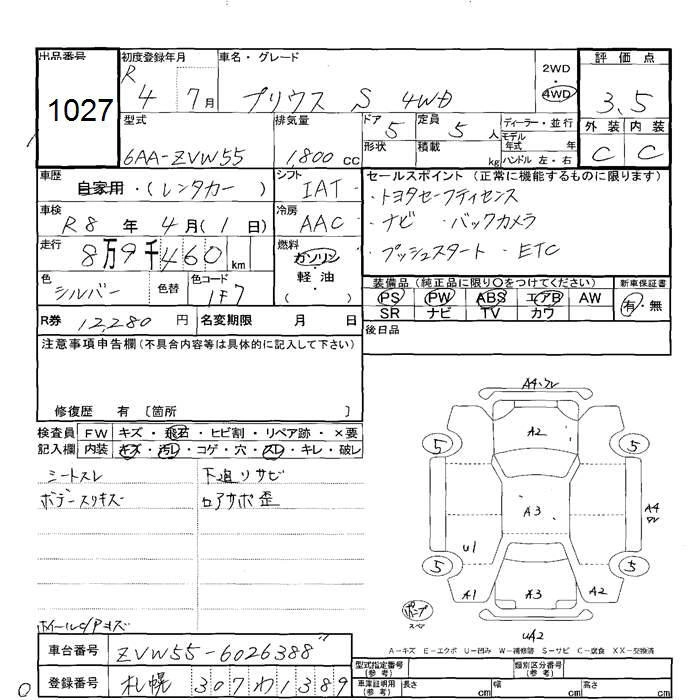 出品番号 初度登録年月 車名・グレード 評価点
1027
R 4 7月 プリウス S 4WD
2WD
4WD
3.5
型式 排気量 ドア 定員 ディーラー・並行 外装 内装
6AA-ZVW55 1800cc 5 5人
形状 積載 kg
モデル年式 年
ハンドル 左・右
C C
車歴 自家用・(レンタカー) シフト IAT
セールスポイント(正常に機能するものに限ります)
・トヨタセーフティセンス
・ナビ ・バックカメラ
・プッシュスタート・ETC
車検 R8年 4月(1日) 冷房 AAC
走行 8万9千460km 燃料 ガソリン・軽油 ( )
色 シルバー 色替 色コード 1F7
装備品(純正品に限り○をつけてください) 新車保証書
PS PW ABS エアB AW 有・無
SR ナビ TV カワ
R券 12,280円 名変期限 月 日
後日品
注意事項申告欄(不具合内容等は具体的に記入して下さい)
修復歴 有 [箇所 ]
検査員 FW キズ・飛石・ヒビ割・リペア跡・×要
記入欄 内装 キズ・汚レ・コゲ・穴・スレ・キレ・破レ
シートスレ 下廻リサビ
ボデースリキズ ロアサポ歪
ホイールC/Pキズ
A4・ワレ
A2
5 5
A3
A4
ワレ
U1
5 5
A1 A3 A2
UA2
ポンプ
スペア
A-キズ E-エクボ U-凹み W-補修跡 S-サビ C-腐食 XX-交換済
車台番号 ZVW55-6026388"
登録番号 札幌 307わ1389
型式指定番号(参考) 類別区分番号(参考)
車庫証明用(参考) 長さ cm 幅 cm 高さ cm